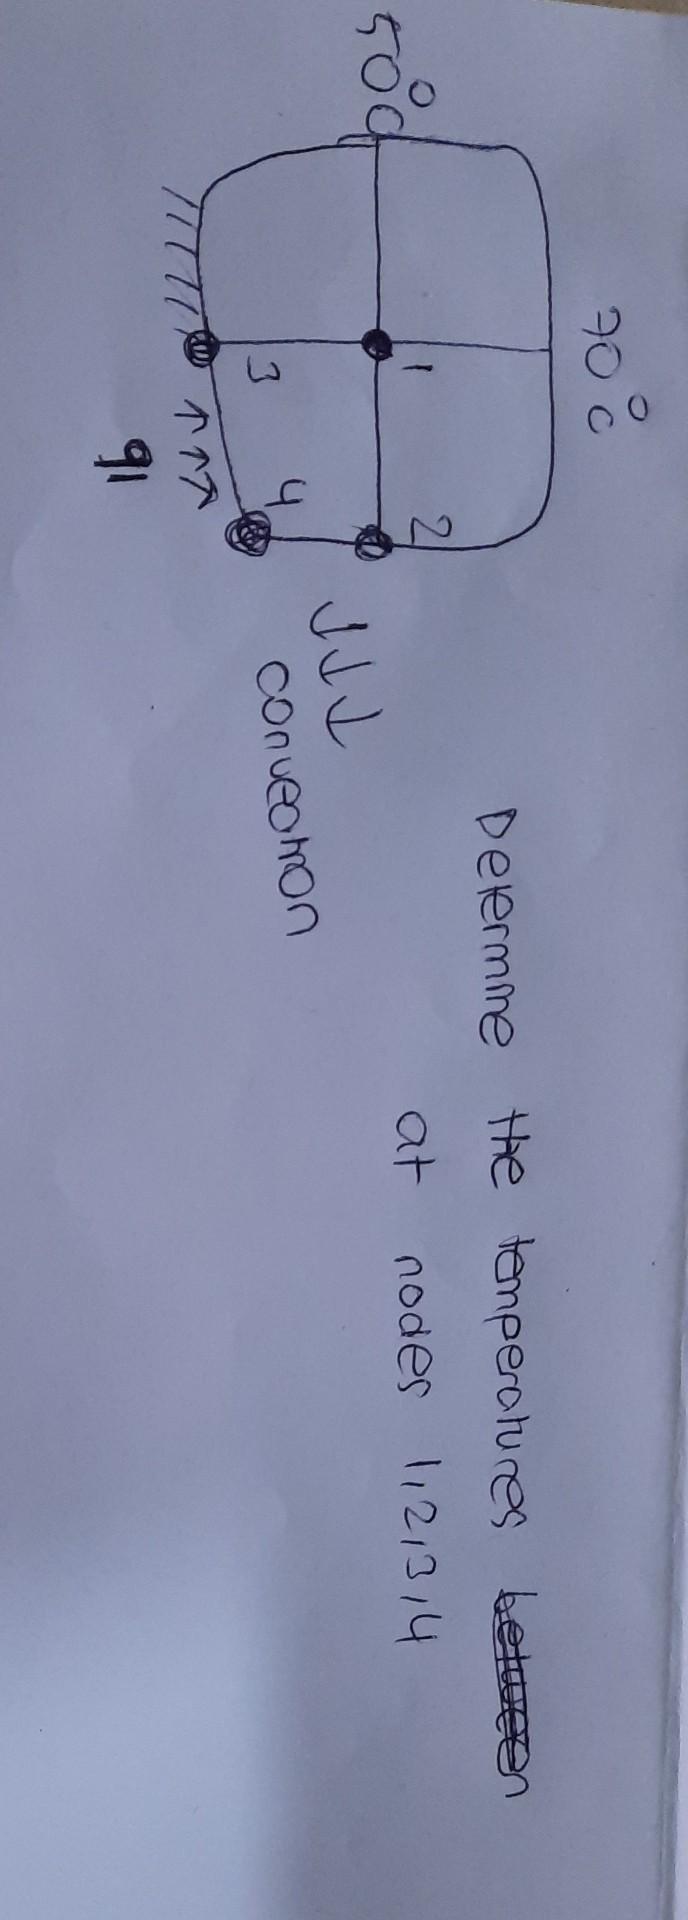 70°C
50°C
1
2
3
4
convection
q1
Determine the temperatures
at nodes 1,2,3,4